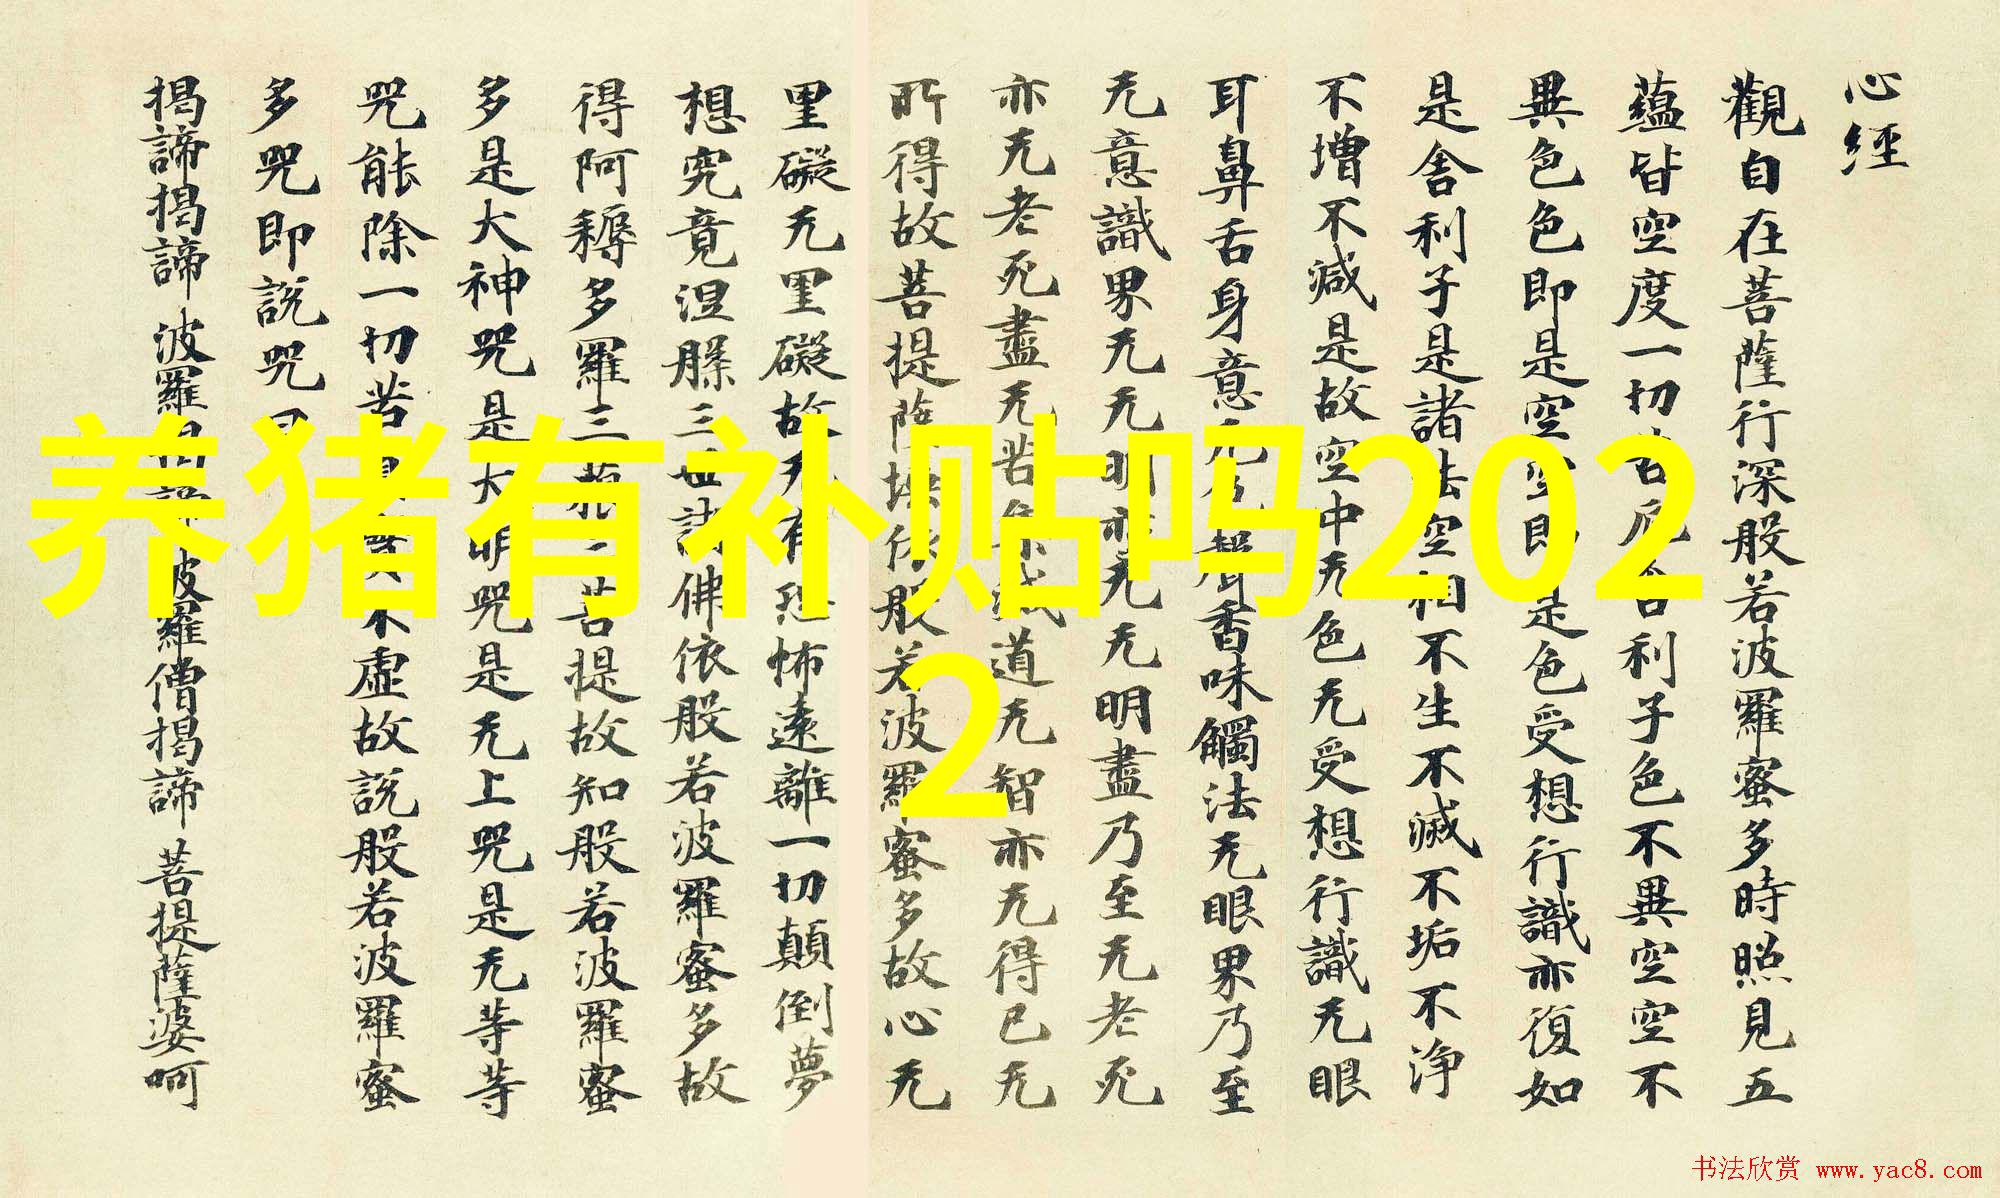 心經
觀自在菩薩行深般若波羅蜜多時照見五
蘊皆空度一切苦厄舍利子色不異空空不
異色色即是空空即是色受想行識亦復如
是舍利子是諸法空相不生不滅不垢不淨
不增不減是故空中无色无受想行識无眼
耳鼻舌身意无色聲香味觸法无眼界乃至
无意識界无无明亦无无明盡乃至无老死
亦无老死盡无苦集滅道无智亦无得已无
所得故菩提薩埵依般若波羅蜜多故心无
罣礙无罣礙故无有恐怖遠離一切顛倒夢
想究竟涅槃三世諸佛依般若波羅蜜多故
得阿耨多羅三藐三菩提故知般若波羅蜜
多是大神咒是大明咒是无上咒是无等等
咒能除一切苦真實不虛故說般若波羅蜜
多咒即說咒曰
揭諦揭諦 波羅揭諦 波羅僧揭諦 菩提薩婆呵
养猪有补贴吗202
2
书法欣赏 www.yac8.com